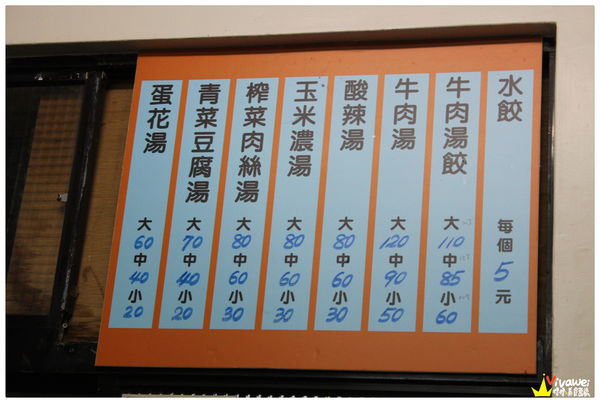 水餃 每個 5 元
牛肉湯餃 大 110 中 85 小 60
牛肉湯 大 120 中 90 小 50
酸辣湯 大 80 中 60 小 30
玉米濃湯 大 80 中 60 小 30
榨菜肉絲湯 大 80 中 60 小 30
青菜豆腐湯 大 70 中 40 小 20
蛋花湯 大 60 中 40 小 20
Vivawei